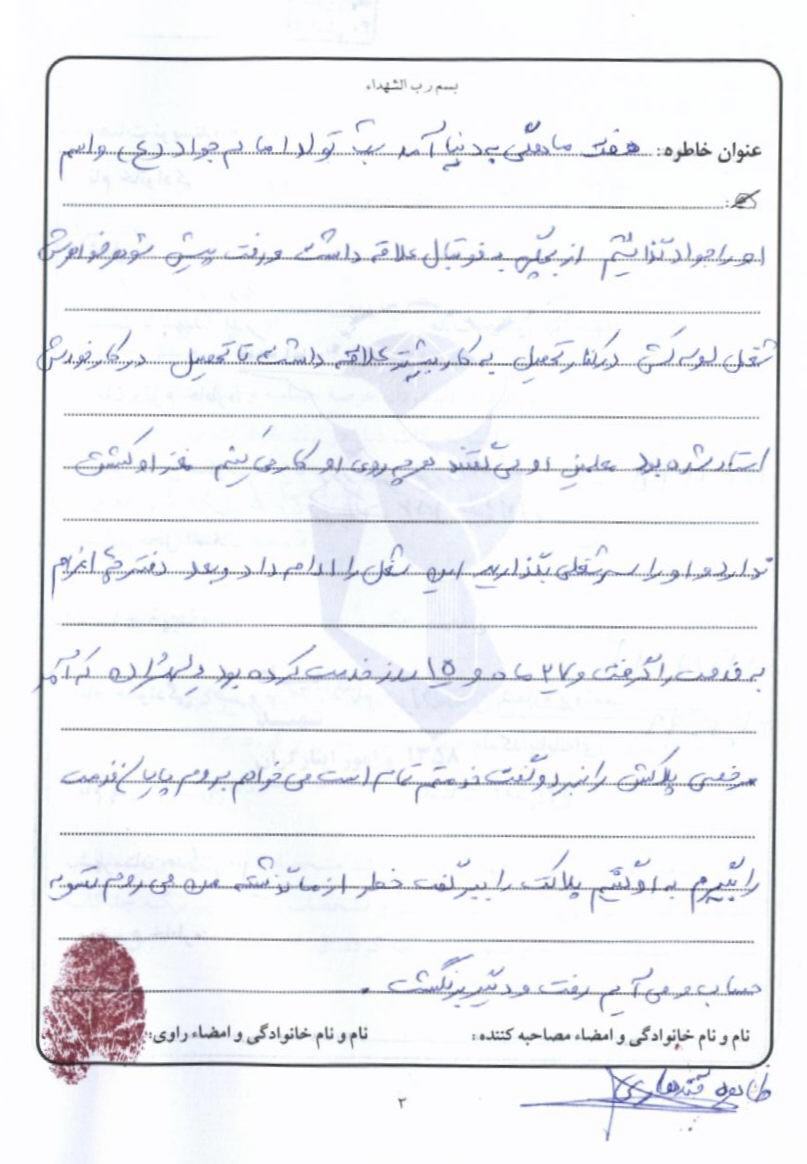 بسم رب الشهداء
عنوان خاطره: هفت ماهگی به دنیا آمد شب تولد امام جواد (ع) و اسم
او را جواد گذاشتیم از بچگی به فوتبال علاقه داشت و رفت پیش شوهر خواهرش
شغل لوله کشی در کنار تحصیل به کار بیشتر علاقه داشت تا تحصیل در کار خودش
استاد شده بود معلمین او می گفتند هر چه روی او کار می کنیم مغز او کشش
ندارد و او را سر شغلی بگذارید این شغل را ادامه داد و بعد دفترچه اعزام
به خدمت را گرفت و ۲۷ ماه و ۱۵ روز خدمت کرده بود که آمد
مرخصی پلاکش را نبرد و گفت خدمتم تمام است می خواهم بروم پایان خدمت
را بگیرم به او گفتیم پلاکت را ببر گفت خطر از ما گذشته من می روم تسویه
حساب و می آیم رفت و دیگر برنگشت .
نام و نام خانوادگی و امضاء مصاحبه کننده : نام و نام خانوادگی و امضاء راوی:
قندهاری
۲